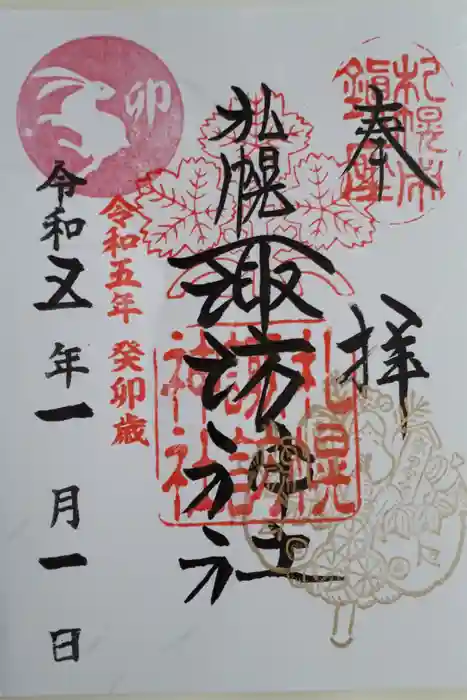 奉拝
札幌市
鎮座
札幌諏訪神社
札幌
諏訪
神社
卯
令和五年 癸卯歳
令和五年一月一日